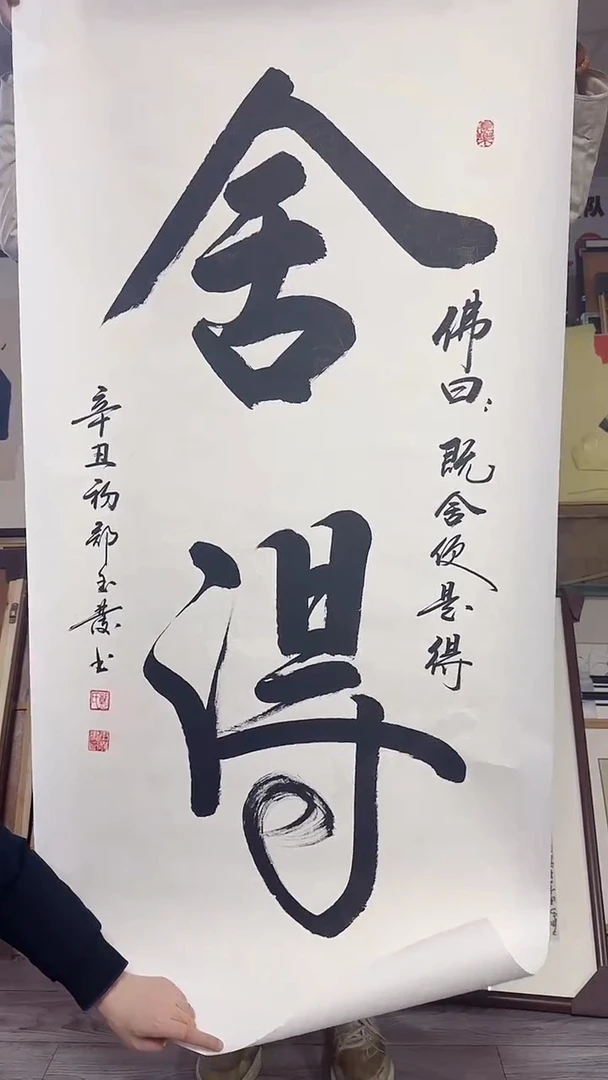 舍得
佛曰：既舍便是得
辛丑初郭玉庆书
队